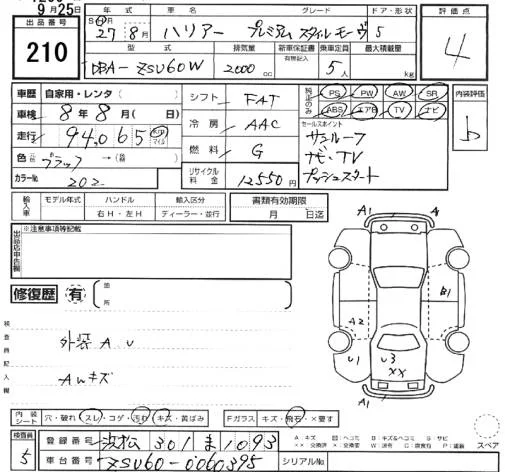 9月25日
出品番号
210
年式 車名 グレード ドア・形状
S H 27年8月 ハリアー プレミアム スタイルモーヴ 5
型式 排気量 新車保証書 乗車定員 最大積載量
有無記入
DBA-ZSU60W 2000cc 5人 kg
評価点
4
車歴 自家用・レンタ( )
車検 8年8月( 日)
走行 94,065 km マイル
色 元色 ブラック →(替色 )
カラーNo. 202
シフト FAT
冷房 AAC
燃料 G
リサイクル料金 12550円
純正のみ PS PW AW SR
ABS エアB TV ナビ
セールスポイント
サンルーフ
ナビ・TV
プッシュスタート
内装評価
b
輸入車 モデル年式 ハンドル 輸入区分
年 右H・左H ディーラー・並行
書類有効期限
月 日迄
出品店申告欄
※注意事項等記載
修復歴 有 箇所
検査員記入欄
外装 A U
AWキズ
A1 A
B1
A2
U1 U3
XX
内装シート 穴・破れ スレ・コゲ・汚れ・キズ・黄ばみ Fガラス キズ・飛石・×要す
A:キズ U:ヘコミ B:キズ&ヘコミ S:サビ
××:交換済 ×:交換要 W:波有 C:腐食有 P:塗装
スペア
検査員
5
登録番号 浜松 301 ま 1093
車台番号 ZSU60-0060395
シリアルNo.